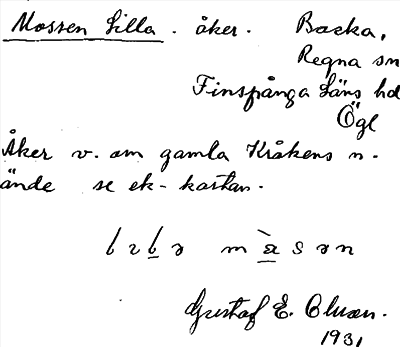 Mossen Lilla. åker. Backa,
Regna sn
Finspånga Läns hd
Ögl
Åker v. om gamla Kråkens n.
ände se ek-kartan.
Gustaf E.
1931